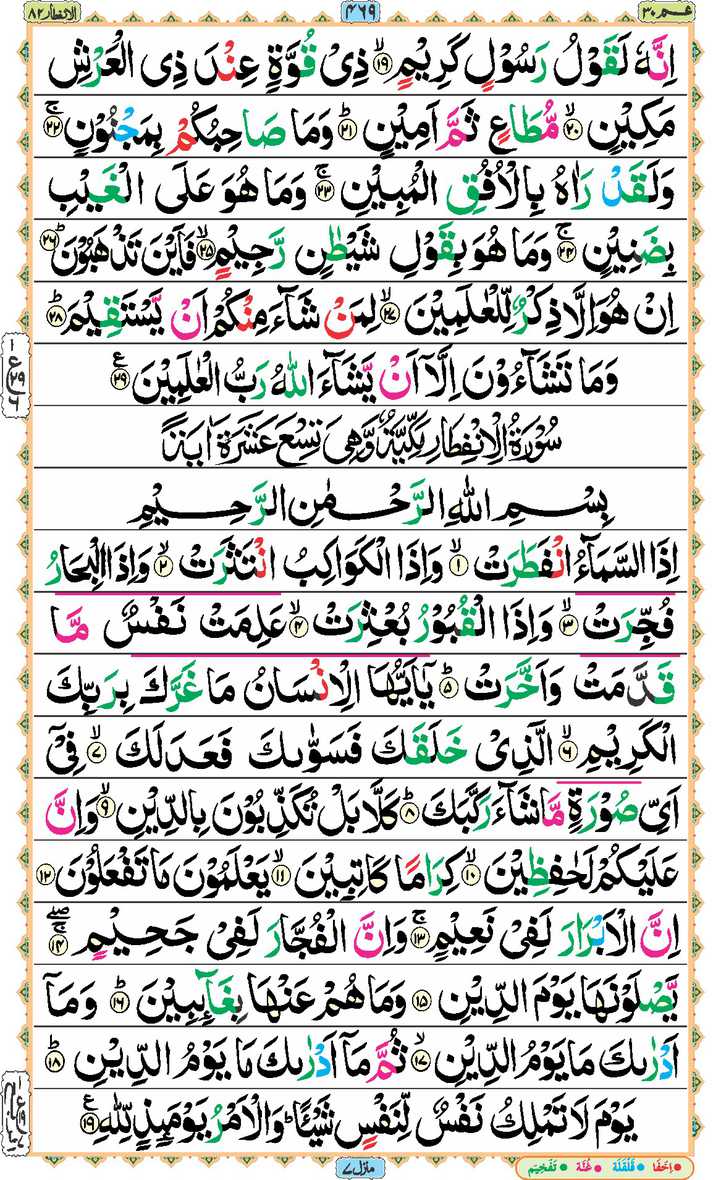 عـم ٣٠
٤٦٩
الانفطار ٨٢
اِنَّهٗ لَقَوْلُ رَسُوْلٍ كَرِيْمٍ ۙ‏﴿۱۹﴾ ذِىْ قُوَّةٍ عِنْدَ ذِى الْعَرْشِ
مَكِيْنٍ ۙ‏﴿۲۰﴾ مُّطَاعٍ ثَمَّ اَمِيْنٍ ؕ‏﴿۲۱﴾ وَمَا صَاحِبُكُمْ بِمَجْنُوْنٍ ۚ‏﴿۲۲﴾
وَلَقَدْ رَاٰهُ بِالْاُفُقِ الْمُبِيْنِ ۚ‏﴿۲۳﴾ وَمَا هُوَ عَلَى الْغَيْبِ
بِضَنِيْنٍ ۚ‏﴿۲۴﴾ وَمَا هُوَ بِقَوْلِ شَيْطٰنٍ رَّجِيْمٍ ۙ‏﴿۲۵﴾ فَاَيْنَ تَذْهَبُوْنَ ؕ‏﴿۲۶﴾
اِنْ هُوَ اِلَّا ذِكْرٌ لِّلْعٰلَمِيْنَ ۙ‏﴿۲۷﴾ لِمَنْ شَآءَ مِنْكُمْ اَنْ يَّسْتَقِيْمَ ؕ‏﴿۲۸﴾
وَمَا تَشَآءُوْنَ اِلَّاۤ اَنْ يَّشَآءَ اللّٰهُ رَبُّ الْعٰلَمِيْنَ‏﴿۲۹﴾ ع
سُوْرَةُ الْاِنْفِطَارِ مَكِّيَّةٌ وَّهِىَ تِسْعَ عَشَرَةَ اٰيَةً
بِسْمِ اللّٰهِ الرَّحْمٰنِ الرَّحِيْمِ
اِذَا السَّمَآءُ انْفَطَرَتْ ۙ‏﴿۱﴾ وَاِذَا الْكَوَاكِبُ انْتَثَرَتْ ۙ‏﴿۲﴾ وَاِذَا الْبِحَارُ
فُجِّرَتْ ۙ‏﴿۳﴾ وَاِذَا الْقُبُوْرُ بُعْثِرَتْ ۙ‏﴿۴﴾ عَلِمَتْ نَفْسٌ مَّا
قَدَّمَتْ وَاَخَّرَتْ ؕ‏﴿۵﴾ يٰۤاَيُّهَا الْاِنْسَانُ مَا غَرَّكَ بِرَبِّكَ
الْكَرِيْمِ ۙ‏﴿۶﴾ الَّذِىْ خَلَقَكَ فَسَوّٰىكَ فَعَدَلَكَ ۙ‏﴿۷﴾ فِىْۤ
اَىِّ صُوْرَةٍ مَّا شَآءَ رَكَّبَكَ ؕ‏﴿۸﴾ كَلَّا بَلْ تُكَذِّبُوْنَ بِالدِّيْنِ ۙ‏﴿۹﴾ وَاِنَّ
عَلَيْكُمْ لَحٰفِظِيْنَ ۙ‏﴿۱۰﴾ كِرَامًا كَاتِبِيْنَ ۙ‏﴿۱۱﴾ يَعْلَمُوْنَ مَا تَفْعَلُوْنَ‏﴿۱۲﴾
اِنَّ الْاَبْرَارَ لَفِىْ نَعِيْمٍ ۚ‏﴿۱۳﴾ وَاِنَّ الْفُجَّارَ لَفِىْ جَحِيْمٍ ۖۚ‏﴿۱۴﴾
يَّصْلَوْنَهَا يَوْمَ الدِّيْنِ‏﴿۱۵﴾ وَمَا هُمْ عَنْهَا بِغَآئِبِيْنَ ؕ‏﴿۱۶﴾ وَمَاۤ
اَدْرٰىكَ مَا يَوْمُ الدِّيْنِ ۙ‏﴿۱۷﴾ ثُمَّ مَاۤ اَدْرٰىكَ مَا يَوْمُ الدِّيْنِ ؕ‏﴿۱۸﴾
يَوْمَ لَا تَمْلِكُ نَفْسٌ لِّنَفْسٍ شَيْئًا ؕ وَالْاَمْرُ يَوْمَئِذٍ لِّلّٰهِ‏﴿۱۹﴾ ع
منزل ٧
اِخفَا قَلْقَلَة غُنَّة تَفْخِيْم